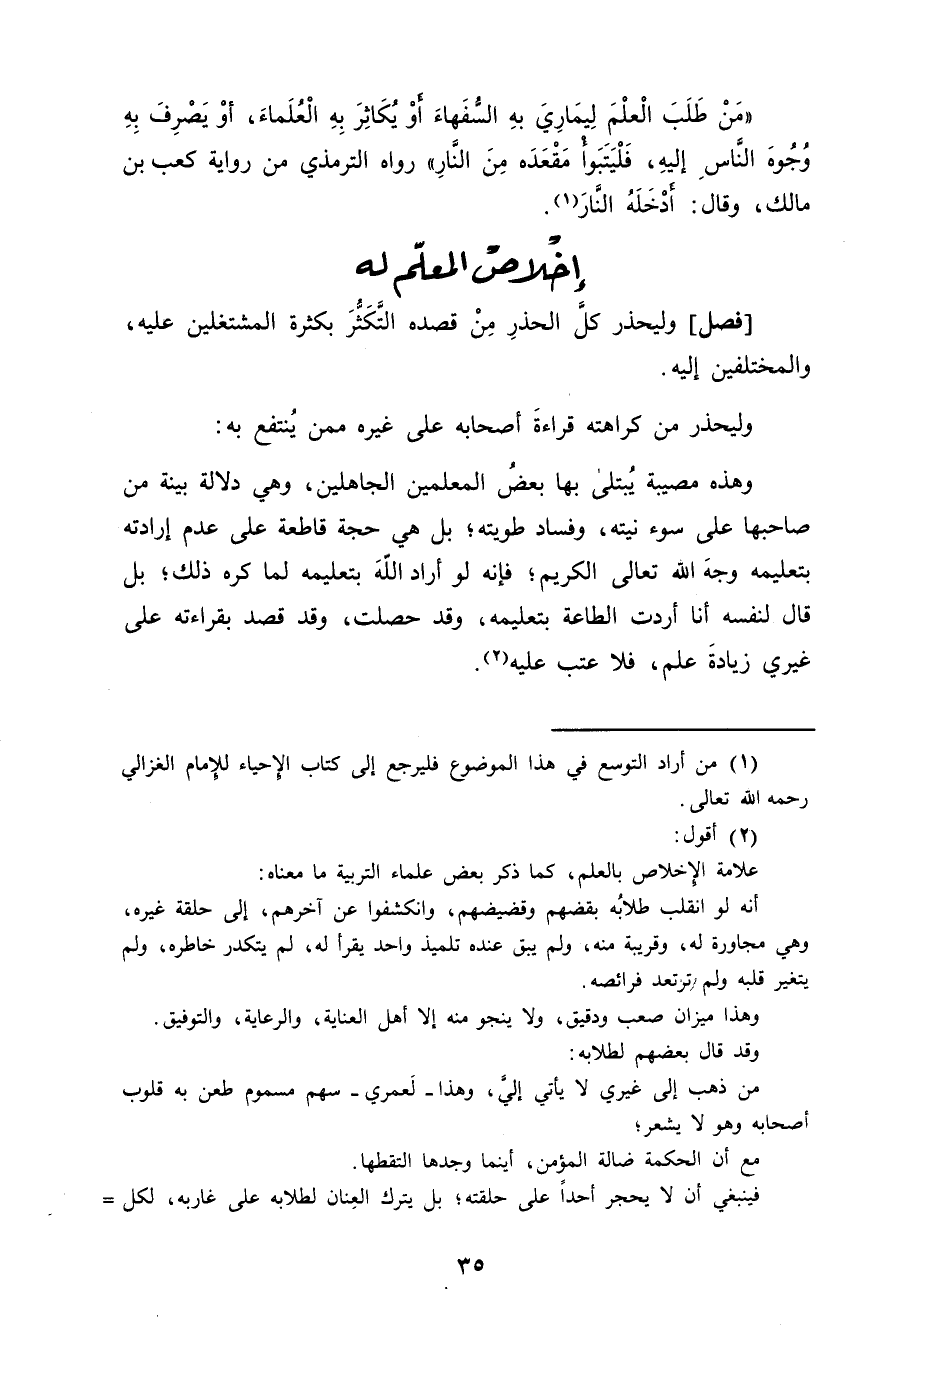 «مَنْ طَلَبَ الْعلْمَ لِيمَارِيَ بهِ السُّفَهاءَ أَوْ يُكَاثِرَ بِهِ الْعُلَماءَ، أوْ يَصْرِفَ بِهِ
وُجُوهَ النَّاسِ إليهِ، فَلْيَتَبَوأْ مَقْعَدَه مِنَ النَّارِ» رواه الترمذي من رواية كعب بن
مالك، وقال: أَدْخَلَهُ النَّارَ(١).
إخْلاصُ المعلّم له
[فصل] وليحذر كلَّ الحذرِ مِنْ قصده التَّكَثُّرَ بكثرة المشتغلين عليه،
والمختلفين إليه.
وليحذر من كراهته قراءةَ أصحابه على غيره ممن يُنتفع به:
وهذه مصيبة يُبتلىٰ بها بعضُ المعلمين الجاهلين، وهي دلالة بينة من
صاحبها على سوء نيته، وفساد طويته؛ بل هي حجة قاطعة على عدم إرادته
بتعليمه وجهَ الله تعالى الكريم؛ فإنه لو أراد اللّهَ بتعليمه لما كره ذلك؛ بل
قال لنفسه أنا أردت الطاعة بتعليمه، وقد حصلت، وقد قصد بقراءته على
غيري زيادةَ علم، فلا عتب عليه(٢).
(١) من أراد التوسع في هذا الموضوع فليرجع إلى كتاب الإحياء للإمام الغزالي
رحمه الله تعالى.
(٢) أقول:
علامة الإخلاص بالعلم، كما ذكر بعض علماء التربية ما معناه:
أنه لو انقلب طلابُه بقضهم وقضيضهم، وانكشفوا عن آخرهم، إلى حلقة غيره،
وهي مجاورة له، وقريبة منه، ولم يبق عنده تلميذ واحد يقرأ له، لم يتكدر خاطره، ولم
يتغير قلبه ولم ترتعد فرائصه.
وهذا ميزان صعب ودقيق، ولا ينجو منه إلا أهل العناية، والرعاية، والتوفيق.
وقد قال بعضهم لطلابه:
من ذهب إلى غيري لا يأتي إليَّ، وهذا ـ لَعمري ـ سهم مسموم طعن به قلوب
أصحابه وهو لا يشعر؛
مع أن الحكمة ضالة المؤمن، أينما وجدها التقطها.
فينبغي أن لا يحجر أحداً على حلقته؛ بل يترك العِنان لطلابه على غاربه، لكل =
٣٥